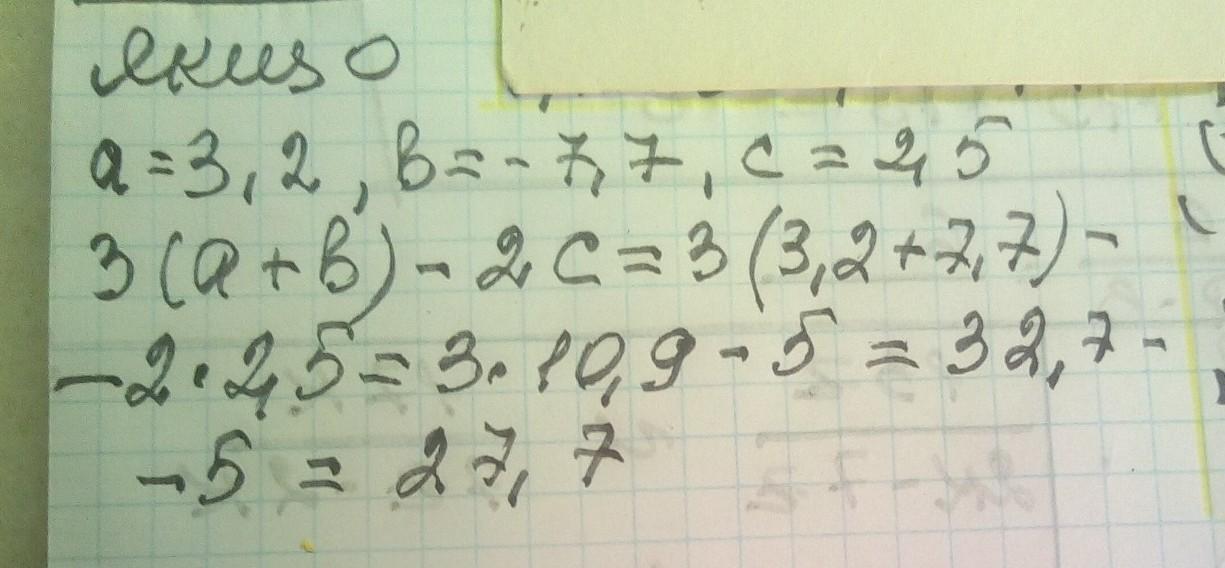 якщо
a = 3,2, в = - 7,7, c = 2,5
3(a + в) - 2c = 3(3,2 + 7,7) -
- 2 · 2,5 = 3 · 10,9 - 5 = 32,7 -
- 5 = 27,7